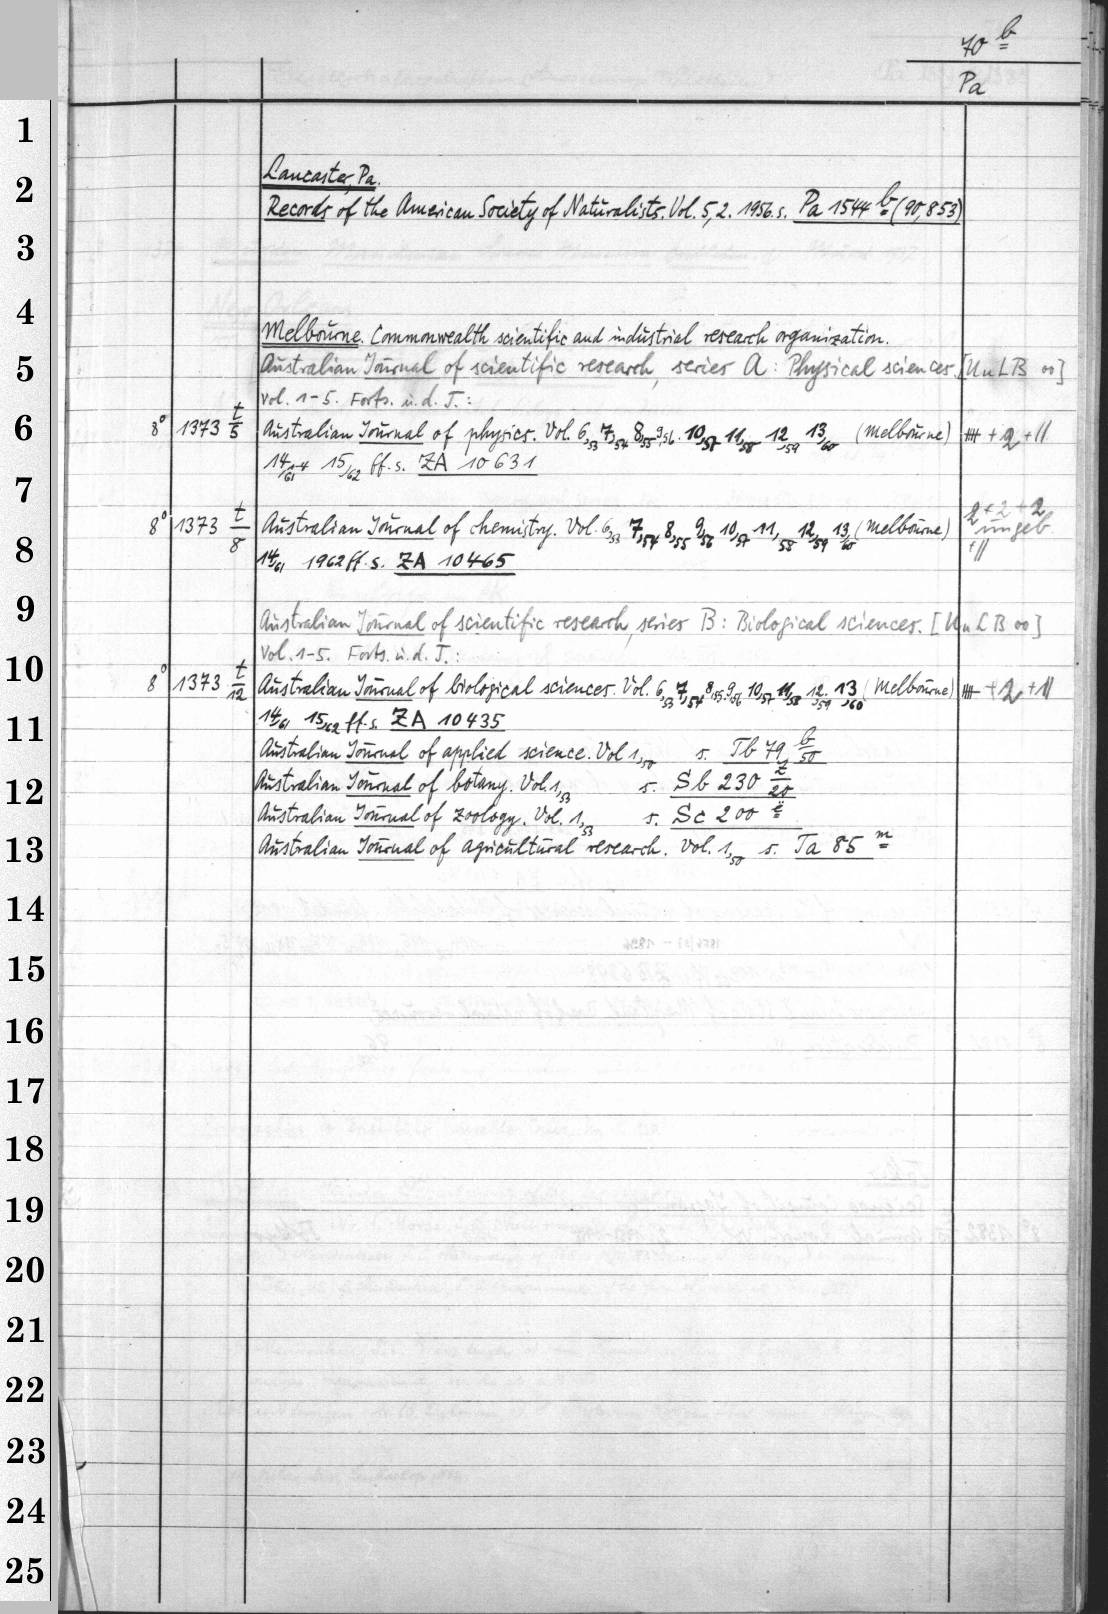 70 b
Pa
1
Lancaster, Pa.
2
Records of the American Society of Naturalists. Vol. 5,2. 1956 s. Pa 1544 b (90,853)
3
4
Melbourne. Commonwealth scientific and industrial research organization.
5 Australian Journal of scientific research, series A: Physical sciences. [UuLB ∞]
vol. 1-5. Forts. u. d. T.:
6 8° 1373 t/5 Australian Journal of physics. Vol. 6,53 7,54 8,55 9,56. 10,57 11,58 12,59 13/60 (Melbourne) + 2 + ||
14/61 15/62 ff. s. ZA 10631
7
8° 1373 t/8 Australian Journal of chemistry. Vol. 6,53 7,54 8,55 9/56 10,57 11,58 12,59 13/60 (Melbourne) 2 + 2 + 2 ungeb. + ||
8 14/61 1962 ff. s. ZA 10465
9 Australian Journal of scientific research, series B: Biological sciences. [UuLB ∞]
vol. 1-5. Forts. u. d. T.:
10 8° 1373 t/12 Australian Journal of biological sciences. Vol. 6,53 7,54 8,55 9,56 10,57 11,58 12,59 13,60 (Melbourne) + 2 + ||
11 14/61 15,62 ff. s. ZA 10435
Australian Journal of applied science. Vol 1,50 s. Tb 79 b/50
12 Australian Journal of botany. Vol. 1,53 s. Sb 230 z/20
Australian Journal of zoology. Vol. 1,53 s. Sc 200
13 Australian Journal of agricultural research. Vol. 1,50 s. Ta 85 m
14
15
16
17
18
19
20
21
22
23
24
25